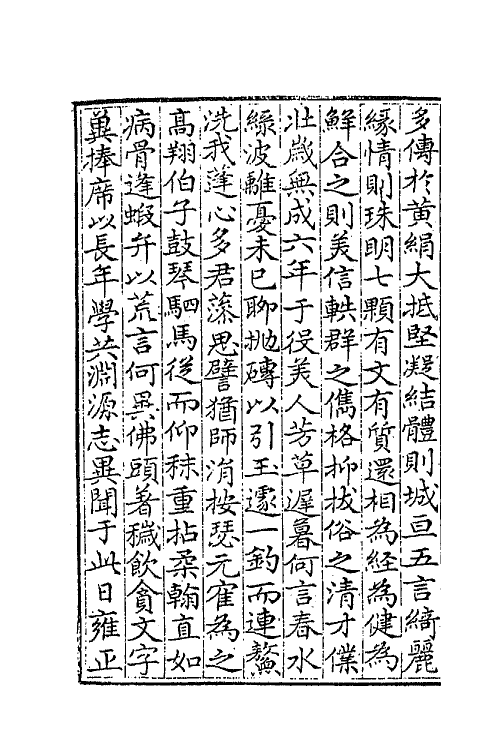 多傳於黃絹大抵堅凝結體則城亘五言綺麗
緣情則珠明七顆有文有質還相為経為健為
鮮合之則美信軼群之儁格抑拔俗之清才僕
壯歲無成六年于役美人芳草遲暮何言春水
綠波離憂未已聊抛磚以引玉遂一釣而連鰲
洗我蓬心多君藻思譬猶師涓按瑟元崔為之
高翔伯子鼓琴駟馬從而仰秣重拈柔翰直如
病骨逢蝦弁以荒言何異佛頭著穢飲貪文字
冀捧席以長年學共淵源志異聞于此日雍正